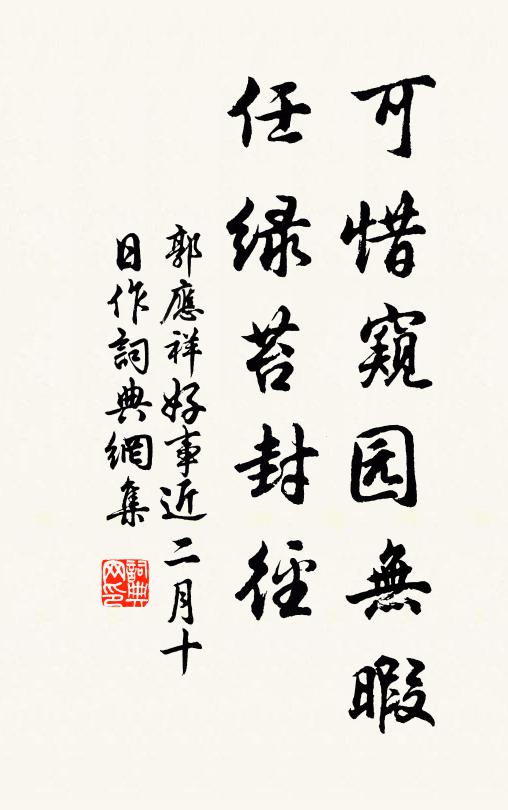 可惜窥园無暇
任緑苔封徑
郭應祥好事近二月十
日作詞典網集
詞典网印